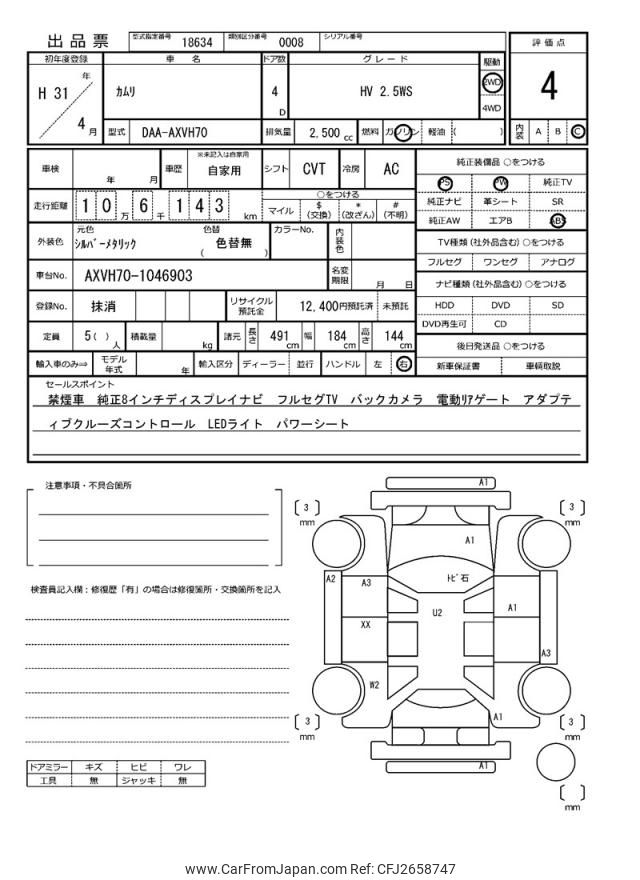 出品票 型式指定番号 18634 類別区分番号 0008 シリアル番号
評価点
4
内装 A B C
初年度登録 車名 ドア数 グレード 駆動
H 31 年 4 月
カムリ 4 D HV 2.5WS 2WD
4WD
型式 DAA-AXVH70 排気量 2,500 cc 燃料 ガソリン 軽油 ( )
車検 年 月 車歴 ※未記入は自家用 自家用 シフト CVT 冷房 AC
走行距離 10 万 6 千 143 km
○をつける
マイル $ (交換) * (改ざん) # (不明)
外装色 元色 シルバーメタリック 色替 ( 色替無 ) カラーNo. 内装色
車台No. AXVH70-1046903 名変期限 月 日
登録No. 抹消 リサイクル預託金 12,400円預託済 未預託
定員 5( ) 人 積載量 kg 諸元 長さ 491 cm 幅 184 cm 高さ 144 cm
輸入車のみ⇒ モデル年式 年 輸入区分 ディーラー 並行 ハンドル 左 右
純正装備品 ○をつける
PS PW 純正TV
純正ナビ 革シート SR
純正AW エアB ABS
TV種類 (社外品含む) ○をつける
フルセグ ワンセグ アナログ
ナビ種類 (社外品含む) ○をつける
HDD DVD SD
DVD再生可 CD
後日発送品 ○をつける
新車保証書 車輌取説
セールスポイント
禁煙車 純正8インチディスプレイナビ フルセグTV バックカメラ 電動リアゲート アダプテ
ィブクルーズコントロール LEDライト パワーシート
注意事項・不具合箇所
検査員記入欄：修復歴「有」の場合は修復箇所・交換箇所を記入
ドアミラー キズ ヒビ ワレ
工具 無 ジャッキ 無
A1
3 mm
3 mm
A1
トビ石
A2
A3
U2
A1
XX
A3
W2
A1
3 mm
3 mm
A1
mm
www.CarFromJapan.com Ref: CFJ2658747